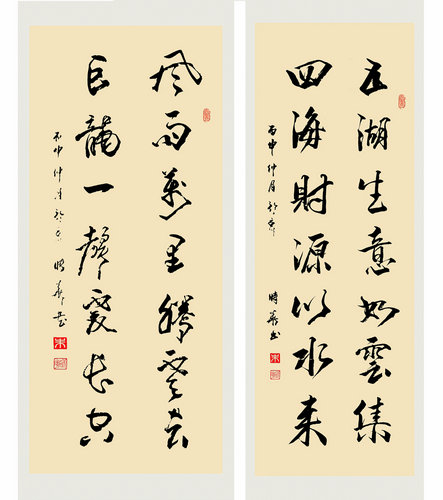 五湖生意如雲集
四海財源似水来
丙申仲月於京 時華書
風雨萬里騰雲去
巨龍一聲震長空
丙申仲月於京 時華書